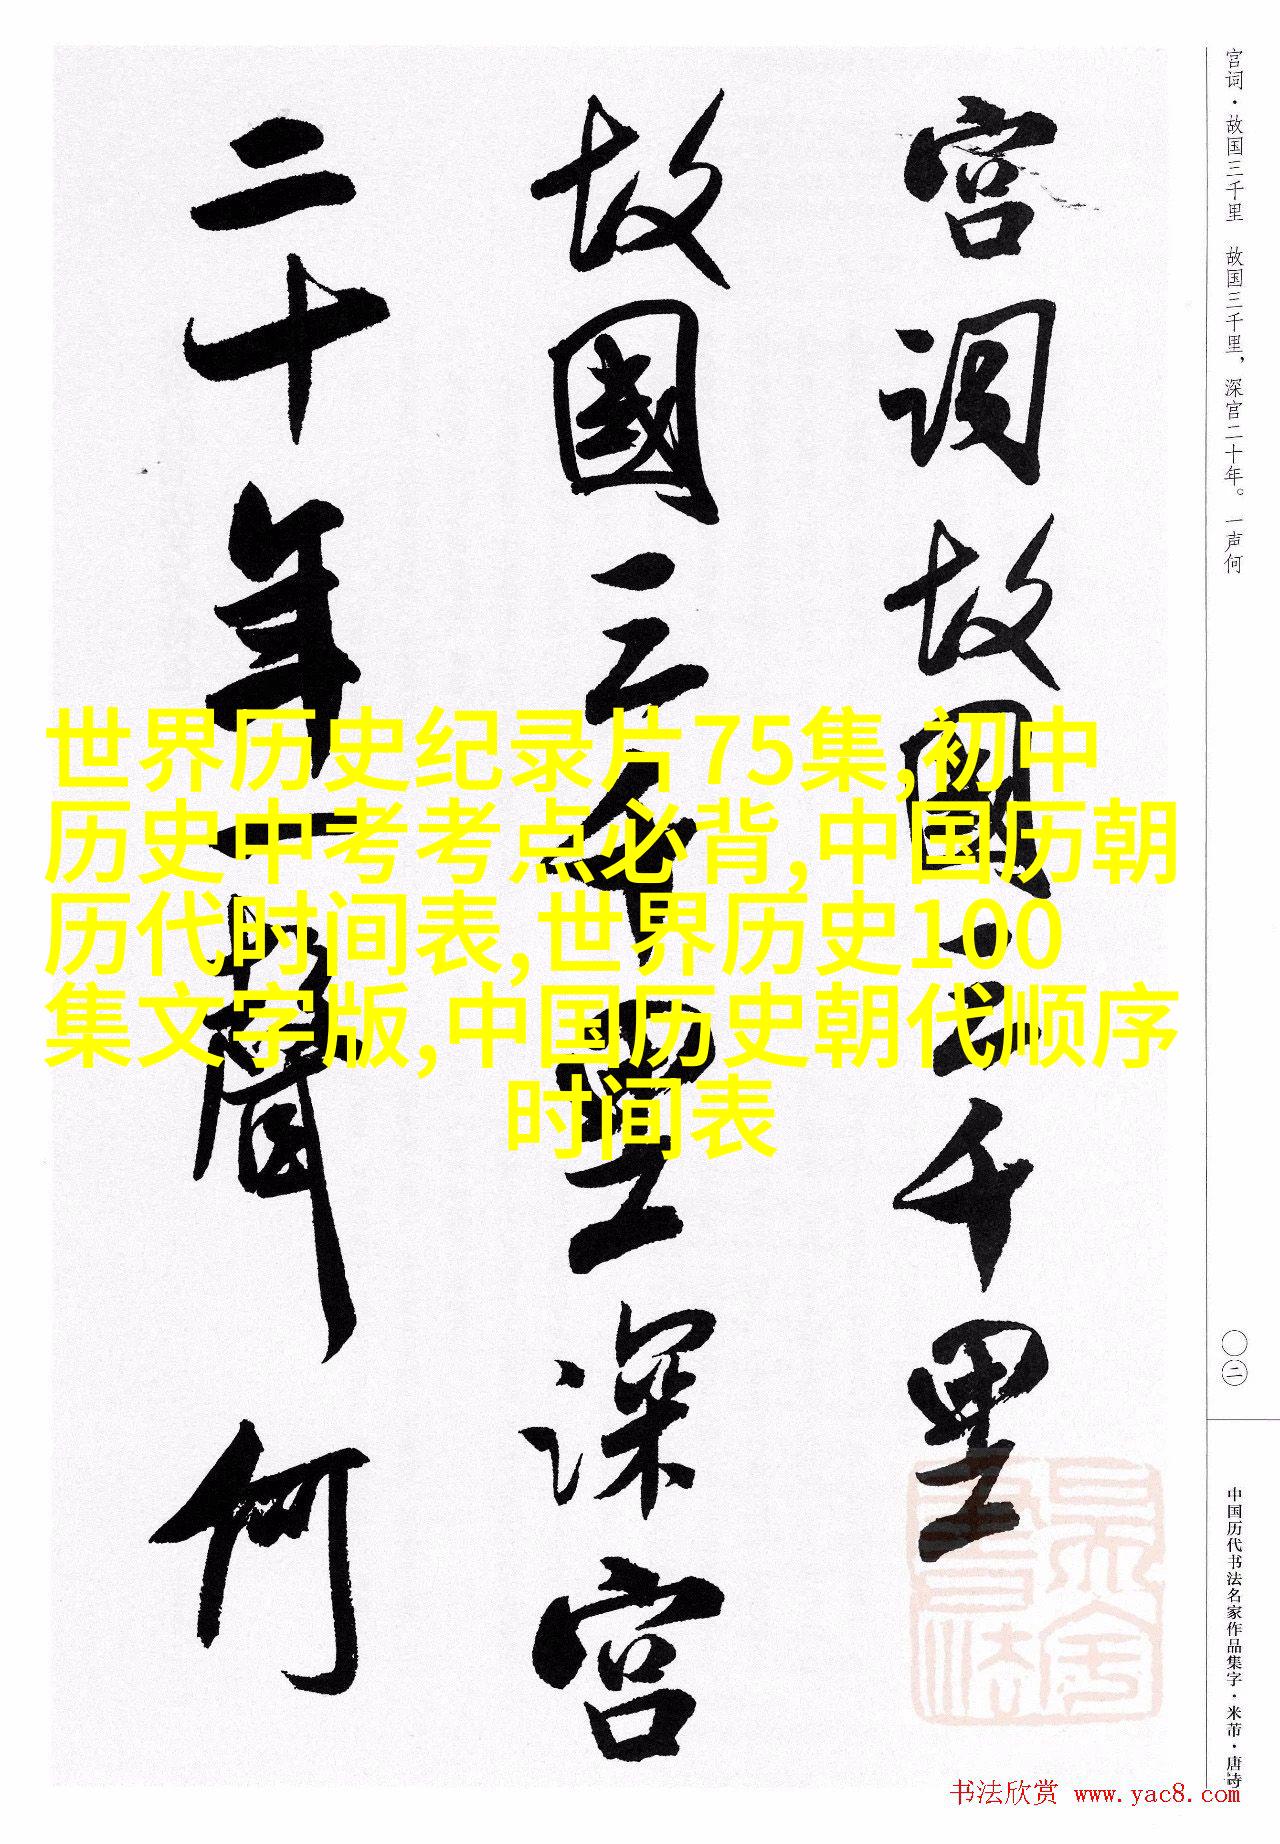 宫词故国三千里
故國三千里深宫
二十年一聲何
世界历史纪录片75集,初中
历史中考考点必背,中国历朝
历代时间表,世界历史100
集文字版,中国历史朝代顺序
时间表
宫词·故国三千里 故国三千里，深宫二十年。一声何
〇二
中国历代书法名家作品集字·米芾·唐诗
书法欣赏 www.yac8.com